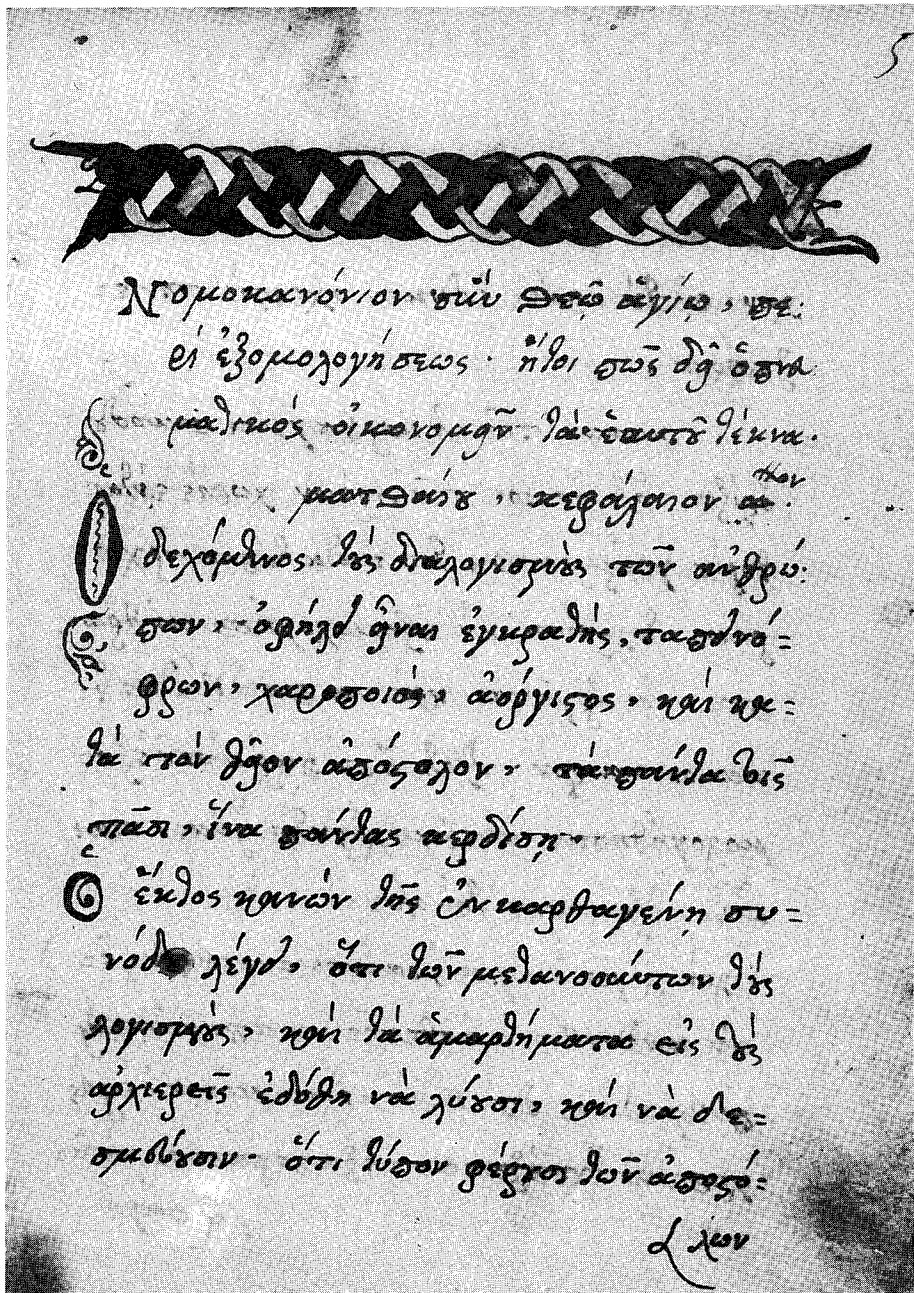 5
Νομοκανόνιον σὺν Θεῷ ἁγίῳ, πε:
ρὶ ἐξομολογήσεως· ἤτοι πῶς δεῖ ὁ πνα
ματικός οἰκονομεῖν τὰ ἑαυτοῦ τέκνα.
ματθαίου, κεφάλαιον
Ὁ δεχόμενος τοὺς διαλογισμοὺς τῶν ἀνθρώ:
πων, ὀφήλει εἶναι ἐγκρατής, ταπεινό=
φρων, χαροποιός, ἀόργιστος, καὶ κα=
τὰ τὸν θεῖον ἀπόστολον, τὰ πάντα τοῖς
πᾶσι, ἵνα πάντας κερδέση.
Ὁ ἕκτος κανὼν τῆς ἐν καρθαγένη συ=
νόδου λέγει, ὅτι τῶν μετανοούντων τοὺς
λογισμοὺς, καὶ τὰ ἁμαρτήματα εἰς τοὺς
ἀρχιερεῖς ἐδόθη νὰ λύουσι, καὶ νὰ δε=
σμεύουσιν· ὅτι τύπον φέρουσι τῶν ἀποστό=
λων